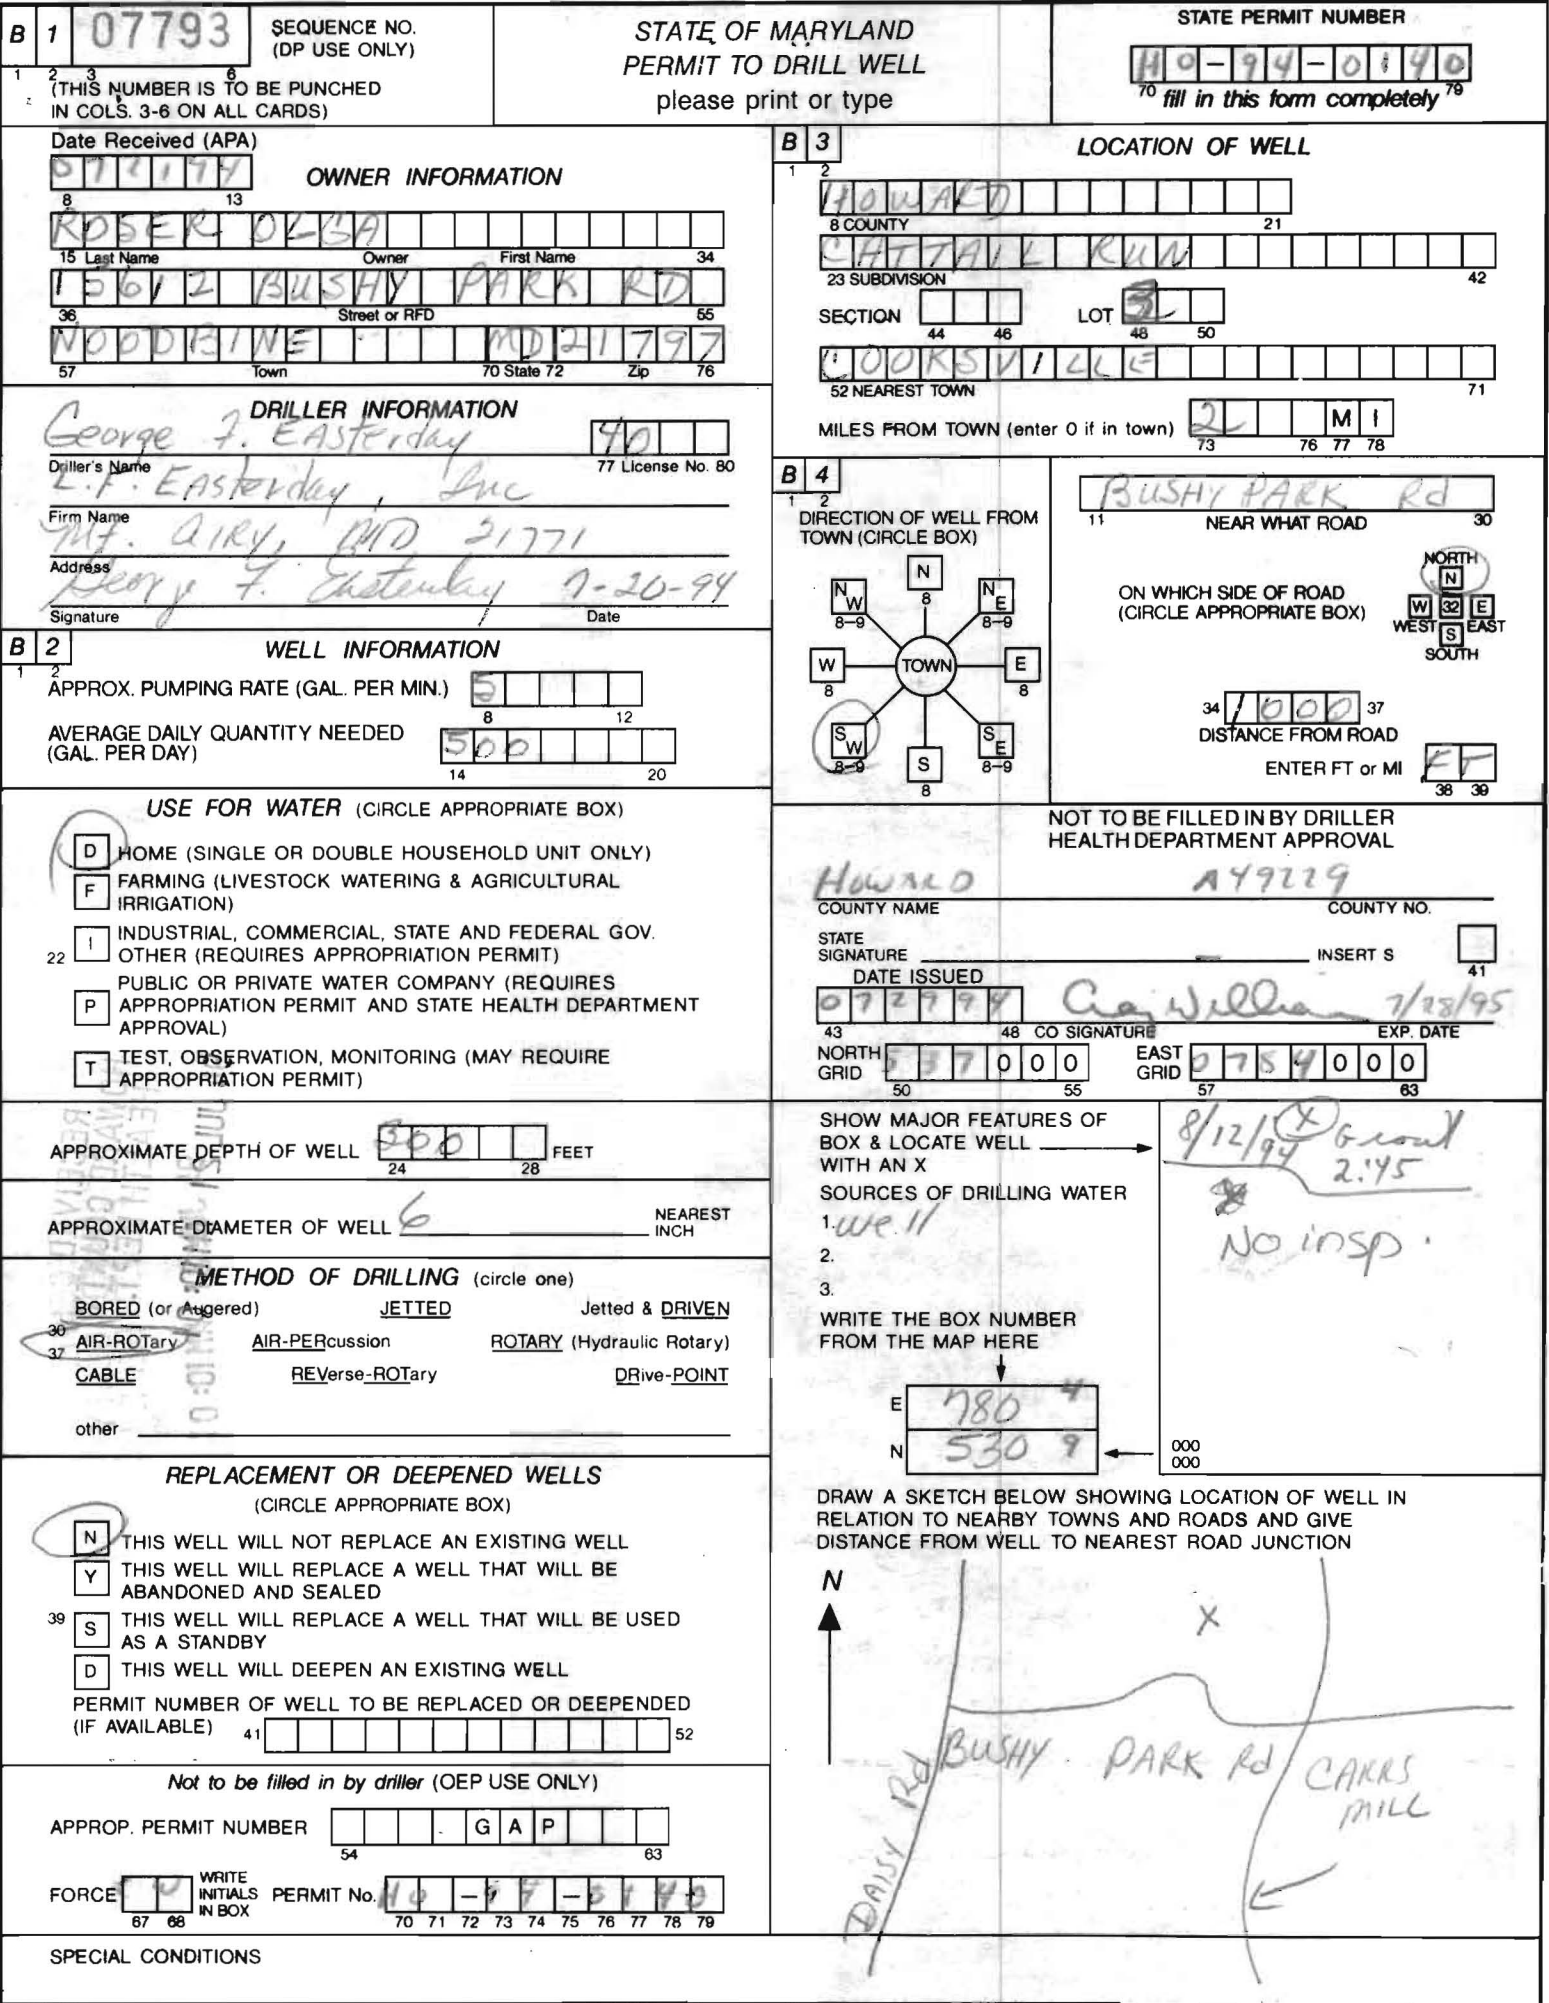 B 1 07793 SEQUENCE NO.
(DP USE ONLY)
1 2 3 6
(THIS NUMBER IS TO BE PUNCHED
IN COLS. 3-6 ON ALL CARDS)
STATE OF MARYLAND
PERMIT TO DRILL WELL
please print or type
STATE PERMIT NUMBER
HO-94-0140
70 fill in this form completely 79
Date Received (APA)
072194
8 13
OWNER INFORMATION
ROSER OLGA
15 Last Name Owner First Name 34
15612 BUSHY PARK RD
36 Street or RFD 55
WOODBINE MD 21797
57 Town 70 State 72 Zip 76
DRILLER INFORMATION
George F. Easterday 40
Driller's Name 77 License No. 80
L.F. Easterday, Inc
Firm Name
Mt. Airy, MD 21771
Address
George F. Easterday 7-20-94
Signature Date
B 2 WELL INFORMATION
1 2
APPROX. PUMPING RATE (GAL. PER MIN.) 5
8 12
AVERAGE DAILY QUANTITY NEEDED
(GAL. PER DAY) 500
14 20
USE FOR WATER (CIRCLE APPROPRIATE BOX)
D HOME (SINGLE OR DOUBLE HOUSEHOLD UNIT ONLY)
F FARMING (LIVESTOCK WATERING & AGRICULTURAL
IRRIGATION)
22 I INDUSTRIAL, COMMERCIAL, STATE AND FEDERAL GOV.
OTHER (REQUIRES APPROPRIATION PERMIT)
P PUBLIC OR PRIVATE WATER COMPANY (REQUIRES
APPROPRIATION PERMIT AND STATE HEALTH DEPARTMENT
APPROVAL)
T TEST, OBSERVATION, MONITORING (MAY REQUIRE
APPROPRIATION PERMIT)
APPROXIMATE DEPTH OF WELL 300 FEET
24 28
APPROXIMATE DIAMETER OF WELL 6 NEAREST
INCH
METHOD OF DRILLING (circle one)
BORED (or Augered) JETTED Jetted & DRIVEN
30
37 AIR-ROTary AIR-PERcussion ROTARY (Hydraulic Rotary)
CABLE REVerse-ROTary DRive-POINT
other
REPLACEMENT OR DEEPENED WELLS
(CIRCLE APPROPRIATE BOX)
N THIS WELL WILL NOT REPLACE AN EXISTING WELL
Y THIS WELL WILL REPLACE A WELL THAT WILL BE
ABANDONED AND SEALED
39 S THIS WELL WILL REPLACE A WELL THAT WILL BE USED
AS A STANDBY
D THIS WELL WILL DEEPEN AN EXISTING WELL
PERMIT NUMBER OF WELL TO BE REPLACED OR DEEPENDED
(IF AVAILABLE) 41 52
Not to be filled in by driller (OEP USE ONLY)
APPROP. PERMIT NUMBER G A P
54 63
FORCE WRITE
INITIALS
IN BOX PERMIT No. HO-94-0140
67 68 70 71 72 73 74 75 76 77 78 79
SPECIAL CONDITIONS
B 3 LOCATION OF WELL
1 2
HOWARD
8 COUNTY 21
CATTAIL RUN
23 SUBDIVISION 42
SECTION LOT
44 46 48 50
COOKSVILLE
52 NEAREST TOWN 71
MILES FROM TOWN (enter 0 if in town) 2 M I
73 76 77 78
B 4
1 2
DIRECTION OF WELL FROM
TOWN (CIRCLE BOX)
N
8
NW NE
8-9 8-9
W TOWN E
8 8
SW SE
8-9 8-9
S
8
BUSHY PARK Rd
11 NEAR WHAT ROAD 30
ON WHICH SIDE OF ROAD
(CIRCLE APPROPRIATE BOX)
NORTH
N
W 32 E
WEST S EAST
SOUTH
34 1000 37
DISTANCE FROM ROAD
ENTER FT or MI FT
38 39
NOT TO BE FILLED IN BY DRILLER
HEALTH DEPARTMENT APPROVAL
HOWARD A49229
COUNTY NAME COUNTY NO.
STATE
SIGNATURE INSERT S
41
DATE ISSUED
072994 Craig William 7/28/95
43 48 CO SIGNATURE EXP. DATE
NORTH
GRID 537000
50 55
EAST
GRID 0784000
57 63
SHOW MAJOR FEATURES OF
BOX & LOCATE WELL
WITH AN X
SOURCES OF DRILLING WATER
1. well
2.
3.
WRITE THE BOX NUMBER
FROM THE MAP HERE
E 780 4
N 530 9
8/12/94 X Grout
2:45
No insp.
000
000
DRAW A SKETCH BELOW SHOWING LOCATION OF WELL IN
RELATION TO NEARBY TOWNS AND ROADS AND GIVE
DISTANCE FROM WELL TO NEAREST ROAD JUNCTION
N
X
BUSHY PARK Rd
CARRS
MILL
DAISY Rd